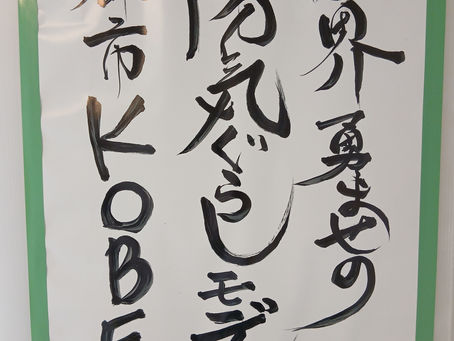 界 勇ませの
陽気ぐらしモデ
市KOBE